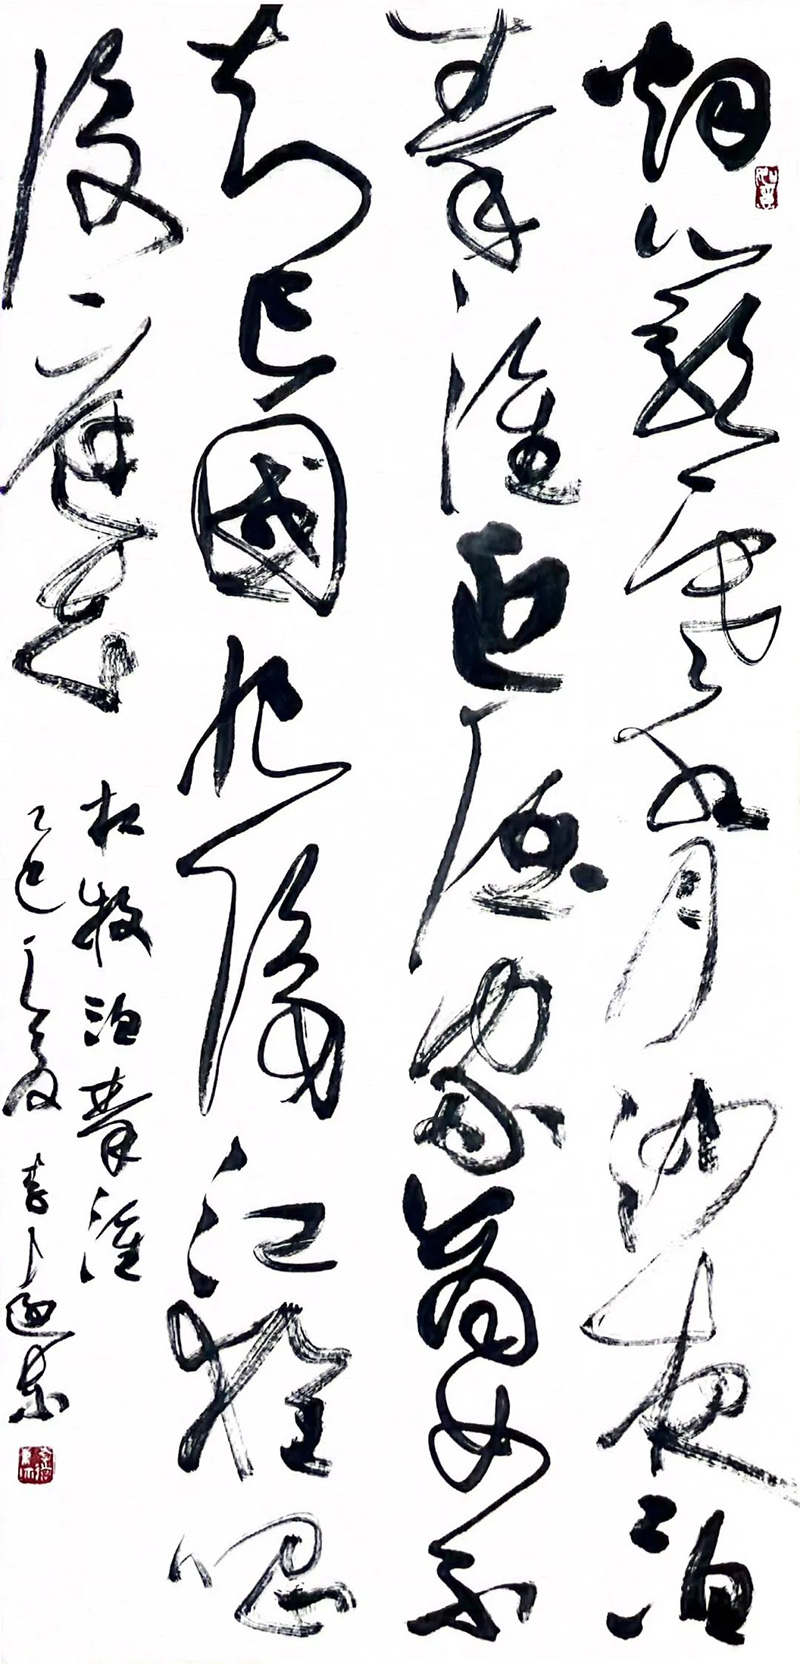 烟笼寒水月沙夜泊
秦淮近酒家商女不
知亡国恨隔江犹唱
后庭花
杜牧泊秦淮
乙巳之夏